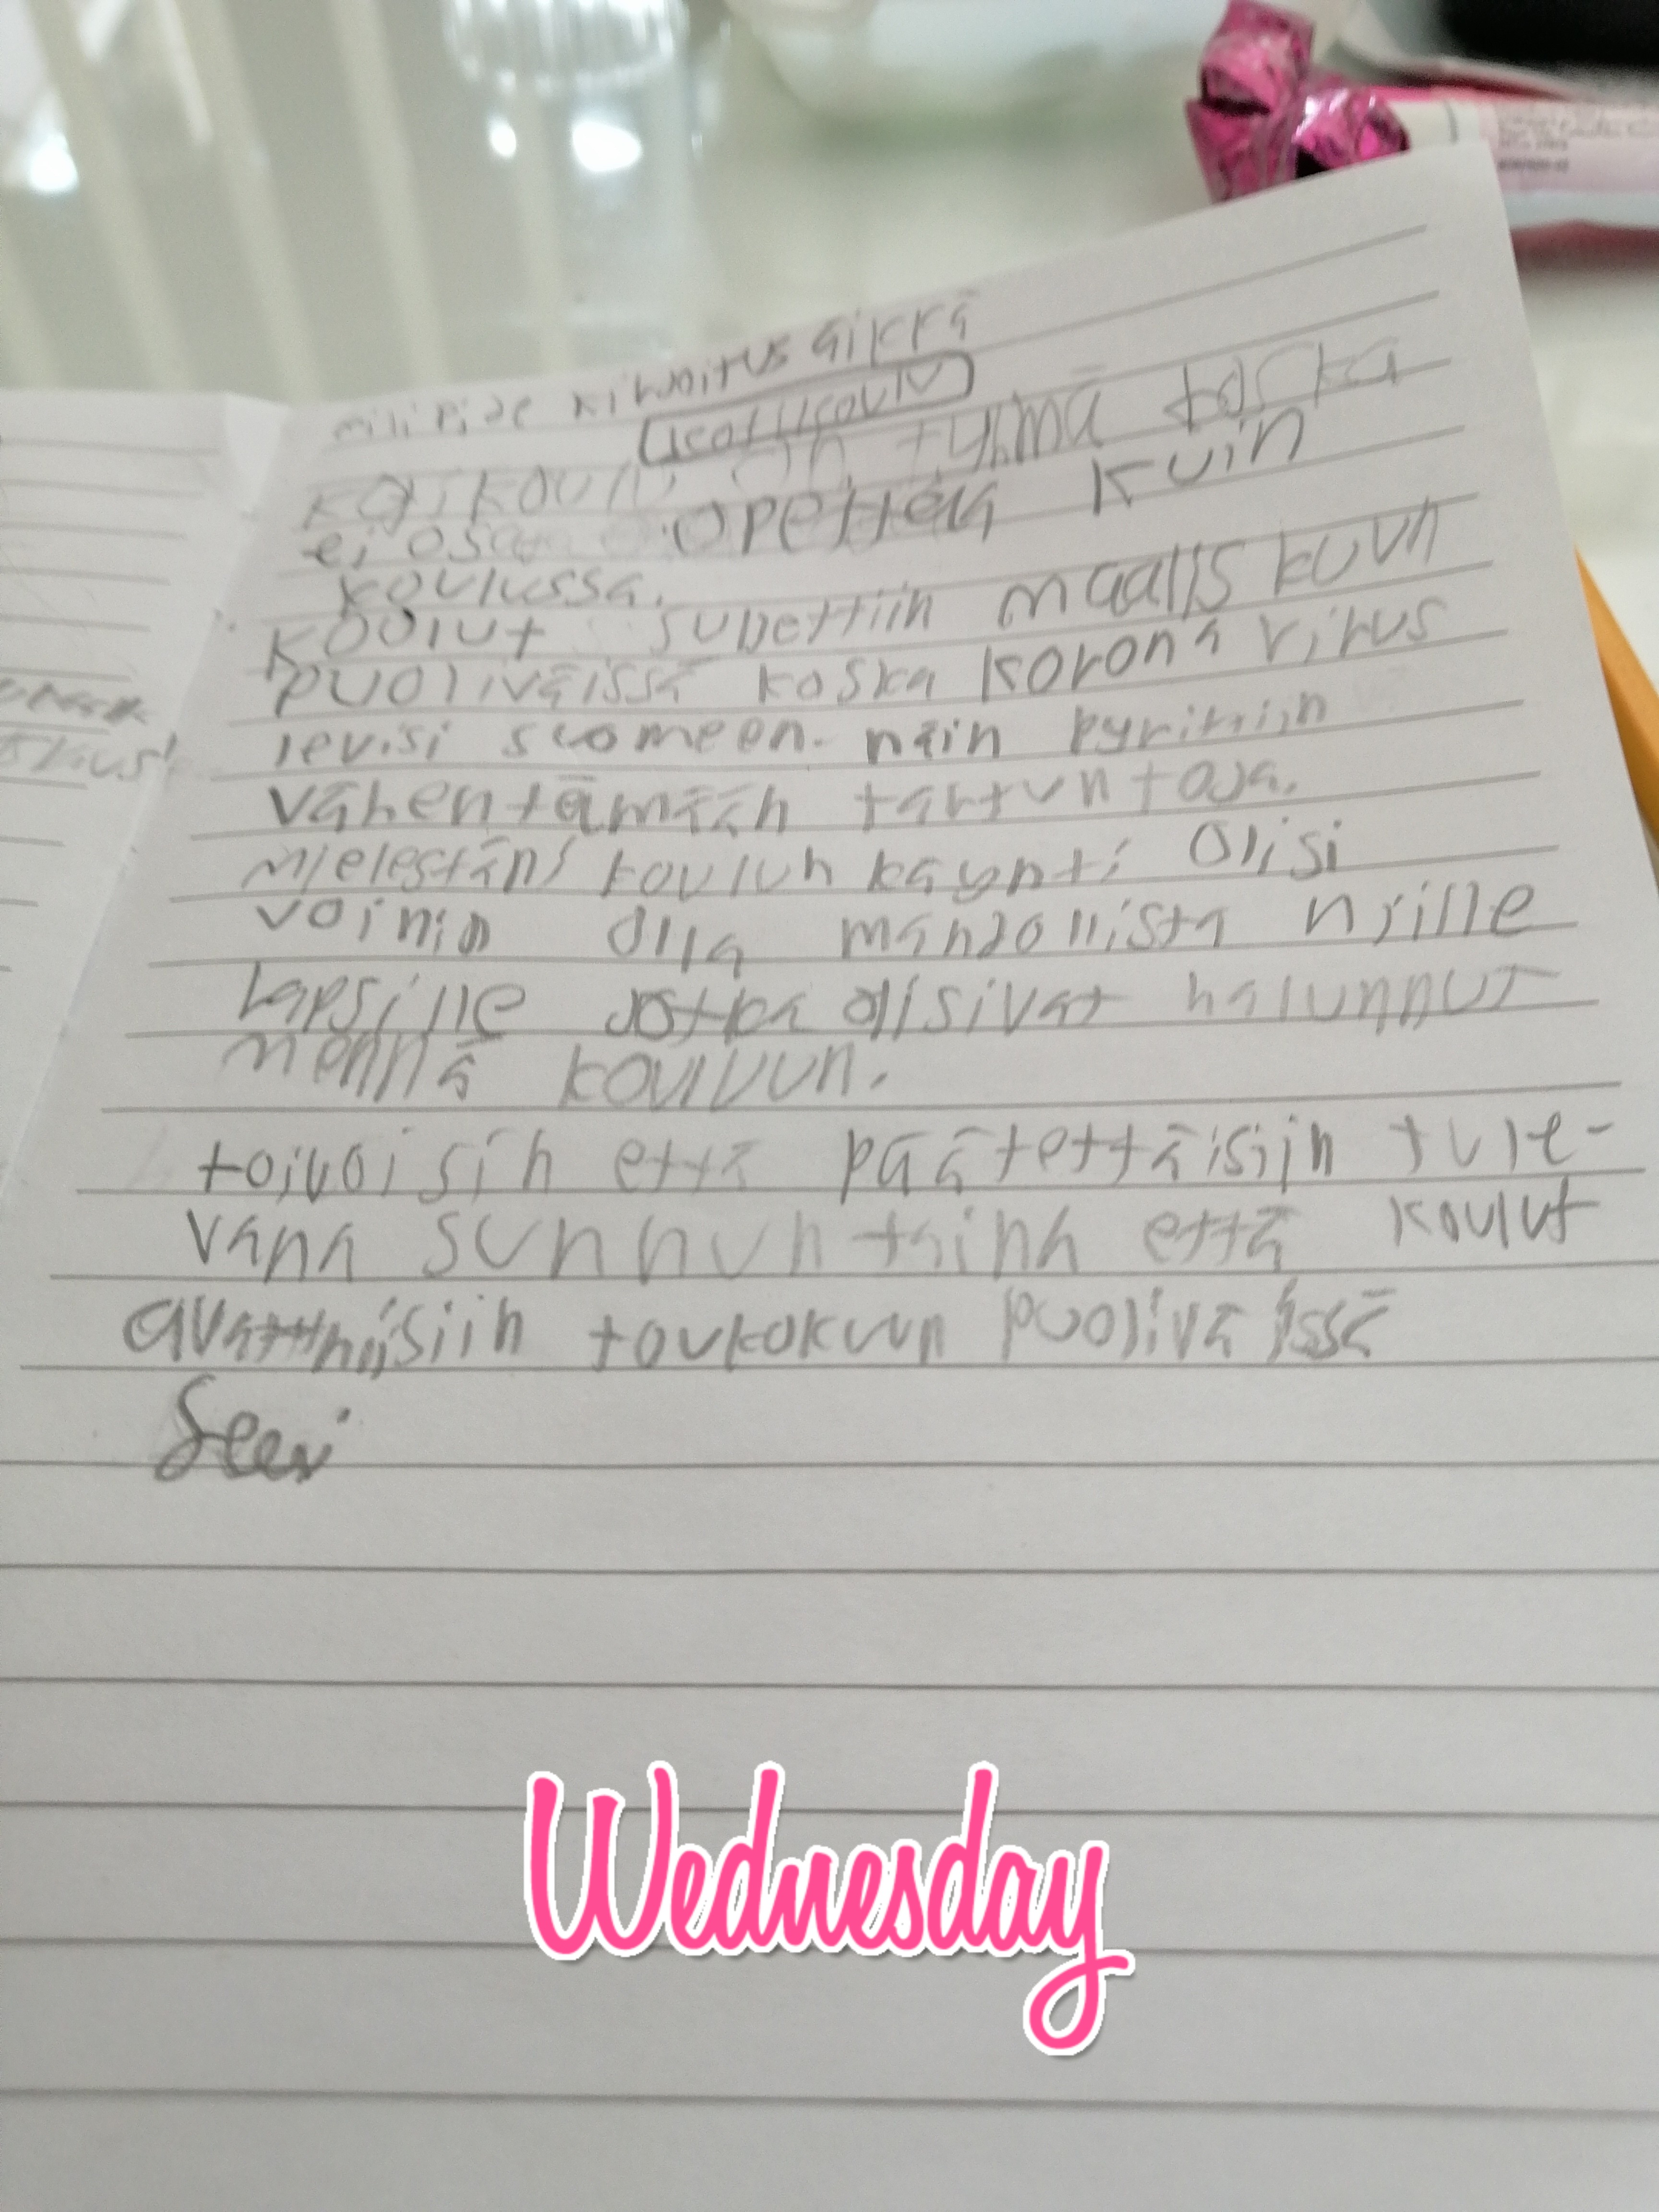 milipide kirjoitus äikkä
kotikoulu
kotikoulu on tyhmä koska
ei osaa opettaa kuin
koulussa.
koulut suljettiin maaliskuun
puoliväissä koska korona virus
levisi suomeen. näin pyrittiin
vähentämään tartuntoja.
mielestäni koulun käynti olisi
voinin olla mahdollista niille
lapsille jotka olisivat halunnut
mennä kouluun.
toivoisin että päätettäisiin tule-
vana sunnuntaina että koulut
toukokuun puoliväissä
Seevi
Wednesday